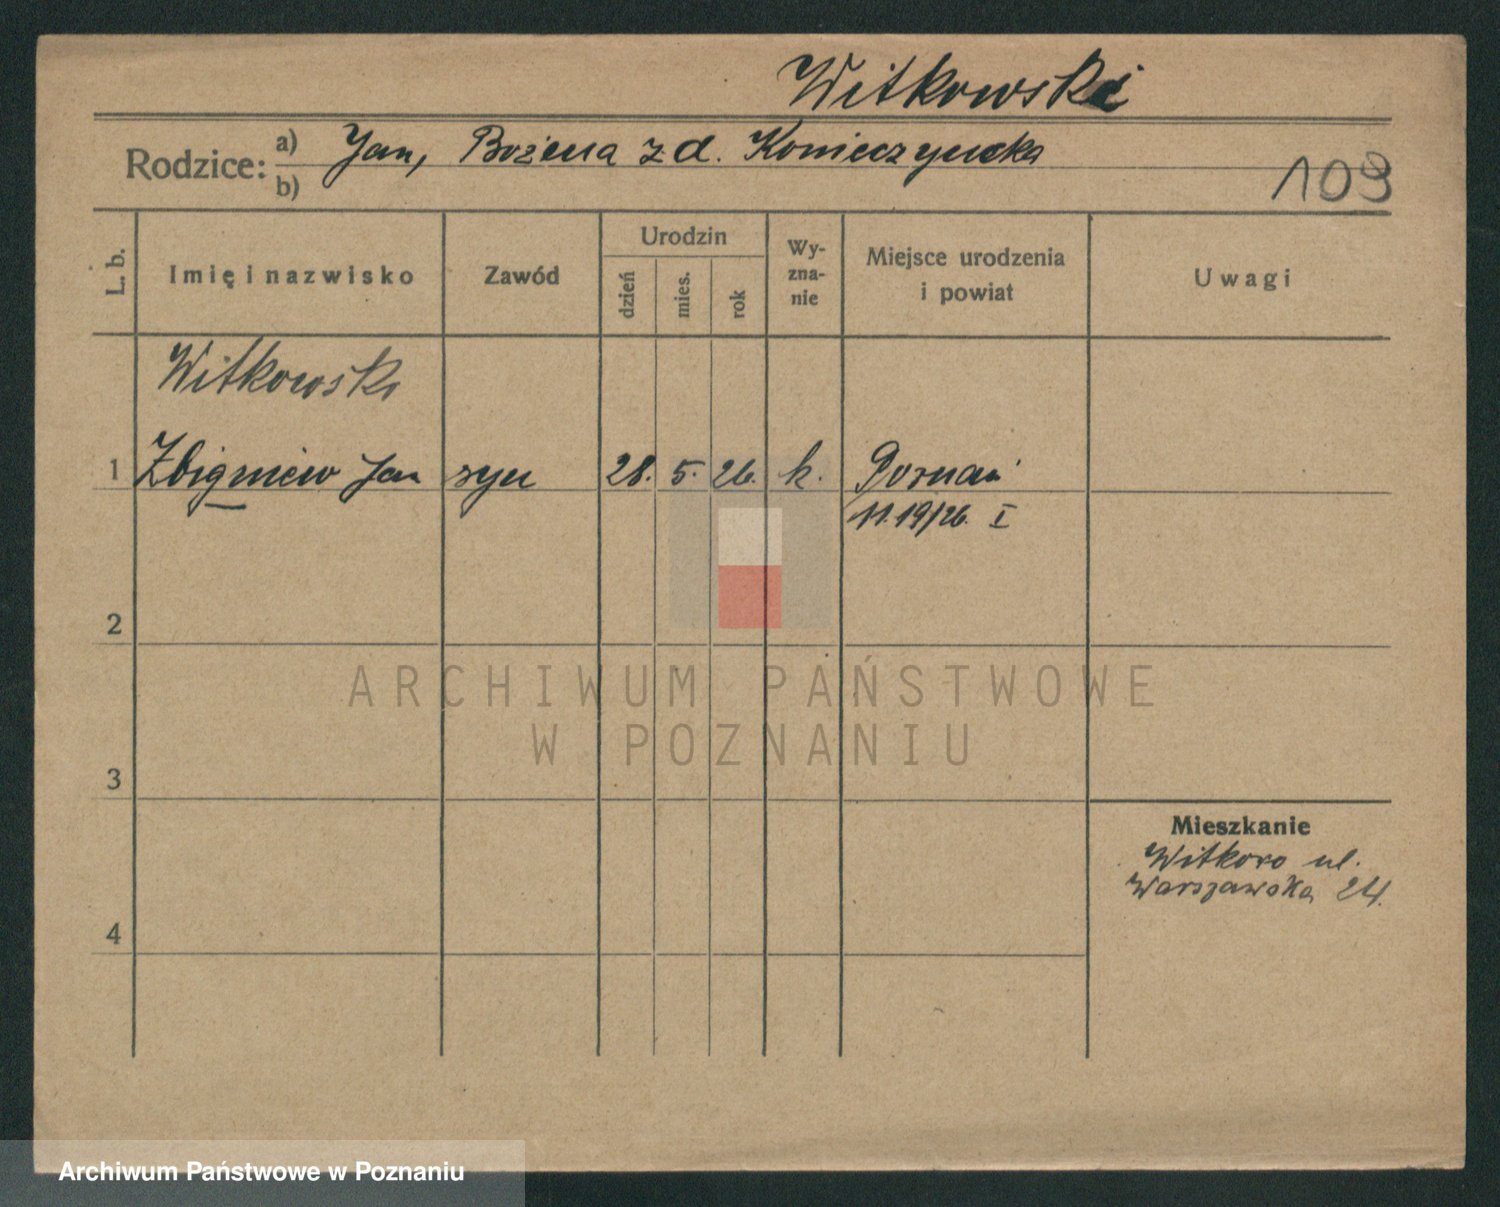 Witkowski
Rodzice: a) Jan, Bożena z d. Konieczyńska
b)
109
L. b.
Imię i nazwisko
Zawód
Urodzin
dzień
mies.
rok
Wy-
zna-
nie
Miejsce urodzenia
i powiat
Uwagi
Witkowski
1 Zbigniew Jan syn 28. 5. 26. k. Poznań
11.19/26. I
2
3
4
Mieszkanie
Witkowo ul.
Warszawska 24.
ARCHIWUM PAŃSTWOWE
W POZNANIU
Archiwum Państwowe w Poznaniu